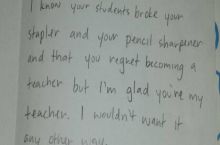 I know your students broke your
stapler and your pencil sharpener
and that you regret becoming a
teacher but I'm glad you're my
teacher. I wouldn't want it
any other way.